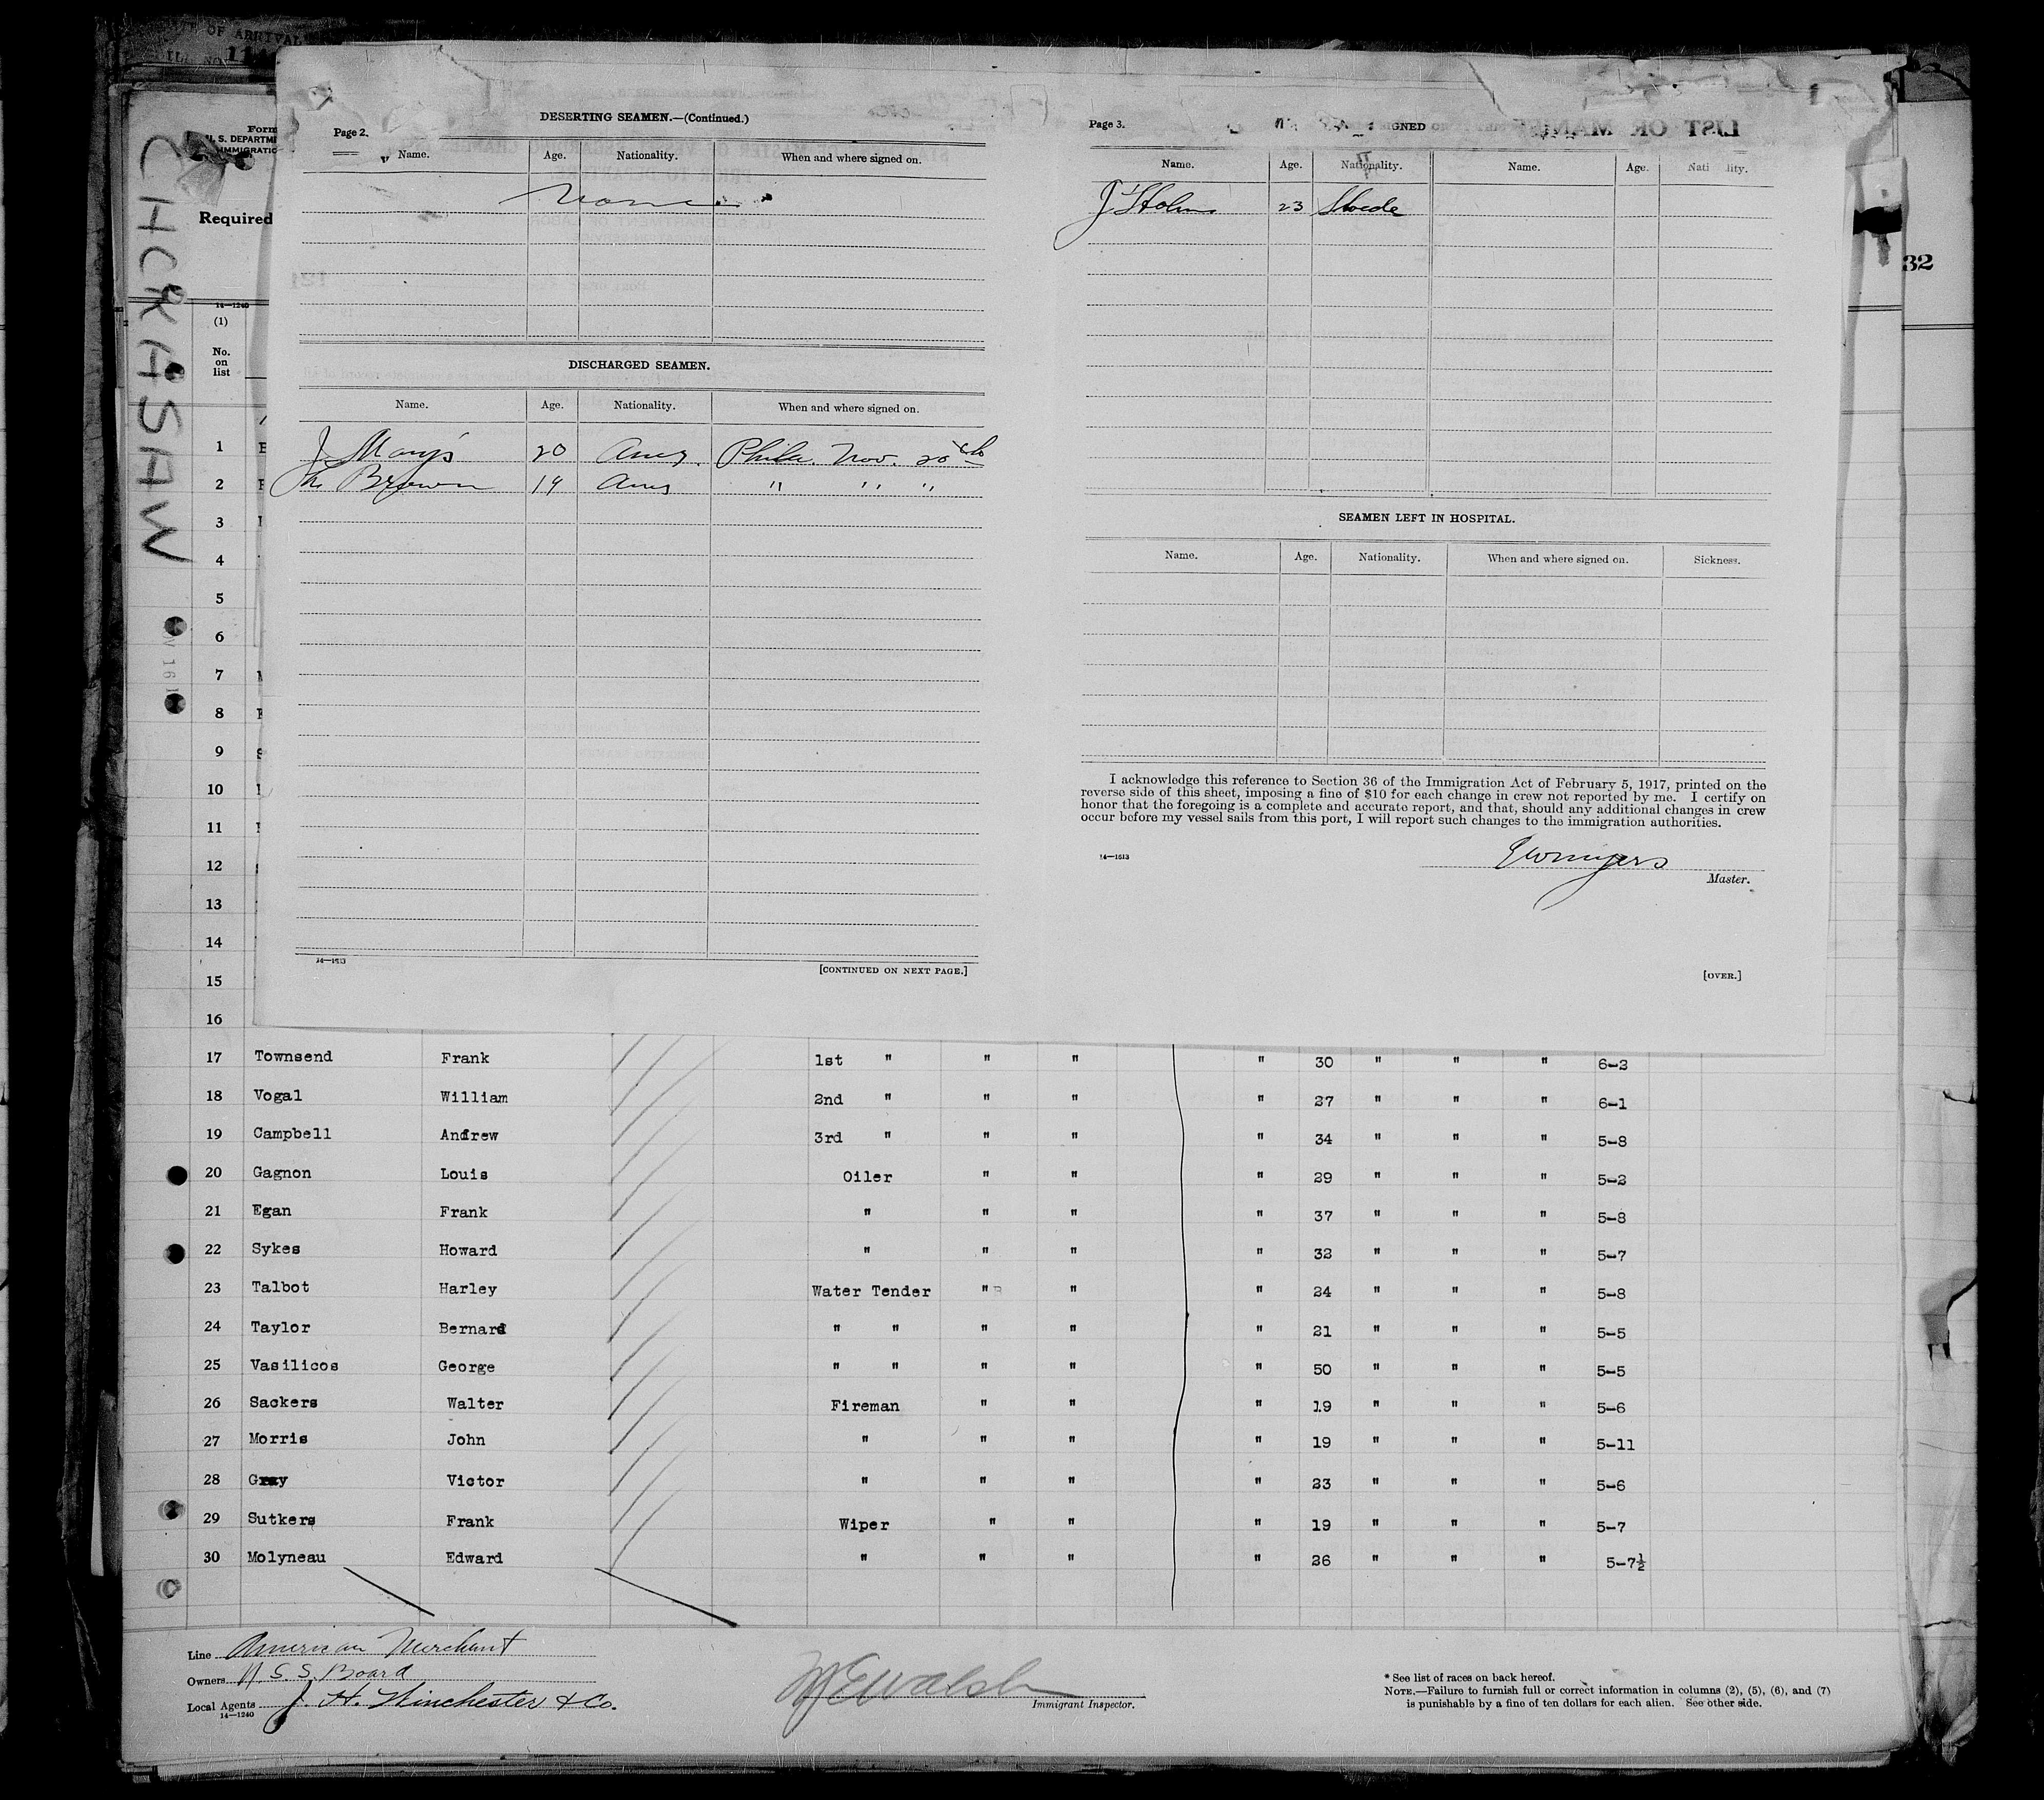 OF ARRIVAL
CHCKASAW
Form
U. S. DEPARTME
IMMIGRATIO
Required
32
14—1240
(1)
No.
on
list
Page 2.
DESERTING SEAMEN.—(Continued.)
Name. Age. Nationality. When and where signed on.
None.
DISCHARGED SEAMEN.
Name. Age. Nationality. When and where signed on.
J. Mays 20 Amer. Phila. Nov. 20th
Brown 19 Amer " " "
14—1613
[CONTINUED ON NEXT PAGE.]
Page 3.
GNED
LIST OR MANI
Name. Age. Nationality. Name. Age. Nati lity.
J Holm 23 Swede
SEAMEN LEFT IN HOSPITAL.
Name. Age. Nationality. When and where signed on. Sickness.
I acknowledge this reference to Section 36 of the Immigration Act of February 5, 1917, printed on the
reverse side of this sheet, imposing a fine of $10 for each change in crew not reported by me. I certify on
honor that the foregoing is a complete and accurate report, and that, should any additional changes in crew
occur before my vessel sails from this port, I will report such changes to the immigration authorities.
14—1613
Master.
[OVER.]
1
2
3
4
5
6
7
8
9
10
11
12
13
14
15
16
17 Townsend Frank 1st " " " " 30 " " " 6-2
18 Vogal William 2nd " " " " 27 " " " 6-1
19 Campbell Andrew 3rd " " " " 34 " " " 5-8
20 Gagnon Louis Oiler " " " 29 " " " 5-2
21 Egan Frank " " " " 37 " " " 5-8
22 Sykes Howard " " " " 32 " " " 5-7
23 Talbot Harley Water Tender " " " 24 " " " 5-8
24 Taylor Bernard " " " " " 21 " " " 5-5
25 Vasilicos George " " " " " 50 " " " 5-5
26 Sackers Walter Fireman " " " 19 " " " 5-6
27 Morris John " " " " 19 " " " 5-11
28 Gray Victor " " " " 23 " " " 5-6
29 Sutkers Frank Wiper " " " 19 " " " 5-7
30 Molyneau Edward " " " " 26 " " " 5-7½
Line American Merchant
Owners U. S. S. Board
Local Agents J. H. Winchester & Co.
14—1240
WJE Walsh
Immigrant Inspector.
* See list of races on back hereof.
NOTE.—Failure to furnish full or correct information in columns (2), (5), (6), and (7)
is punishable by a fine of ten dollars for each alien. See other side.